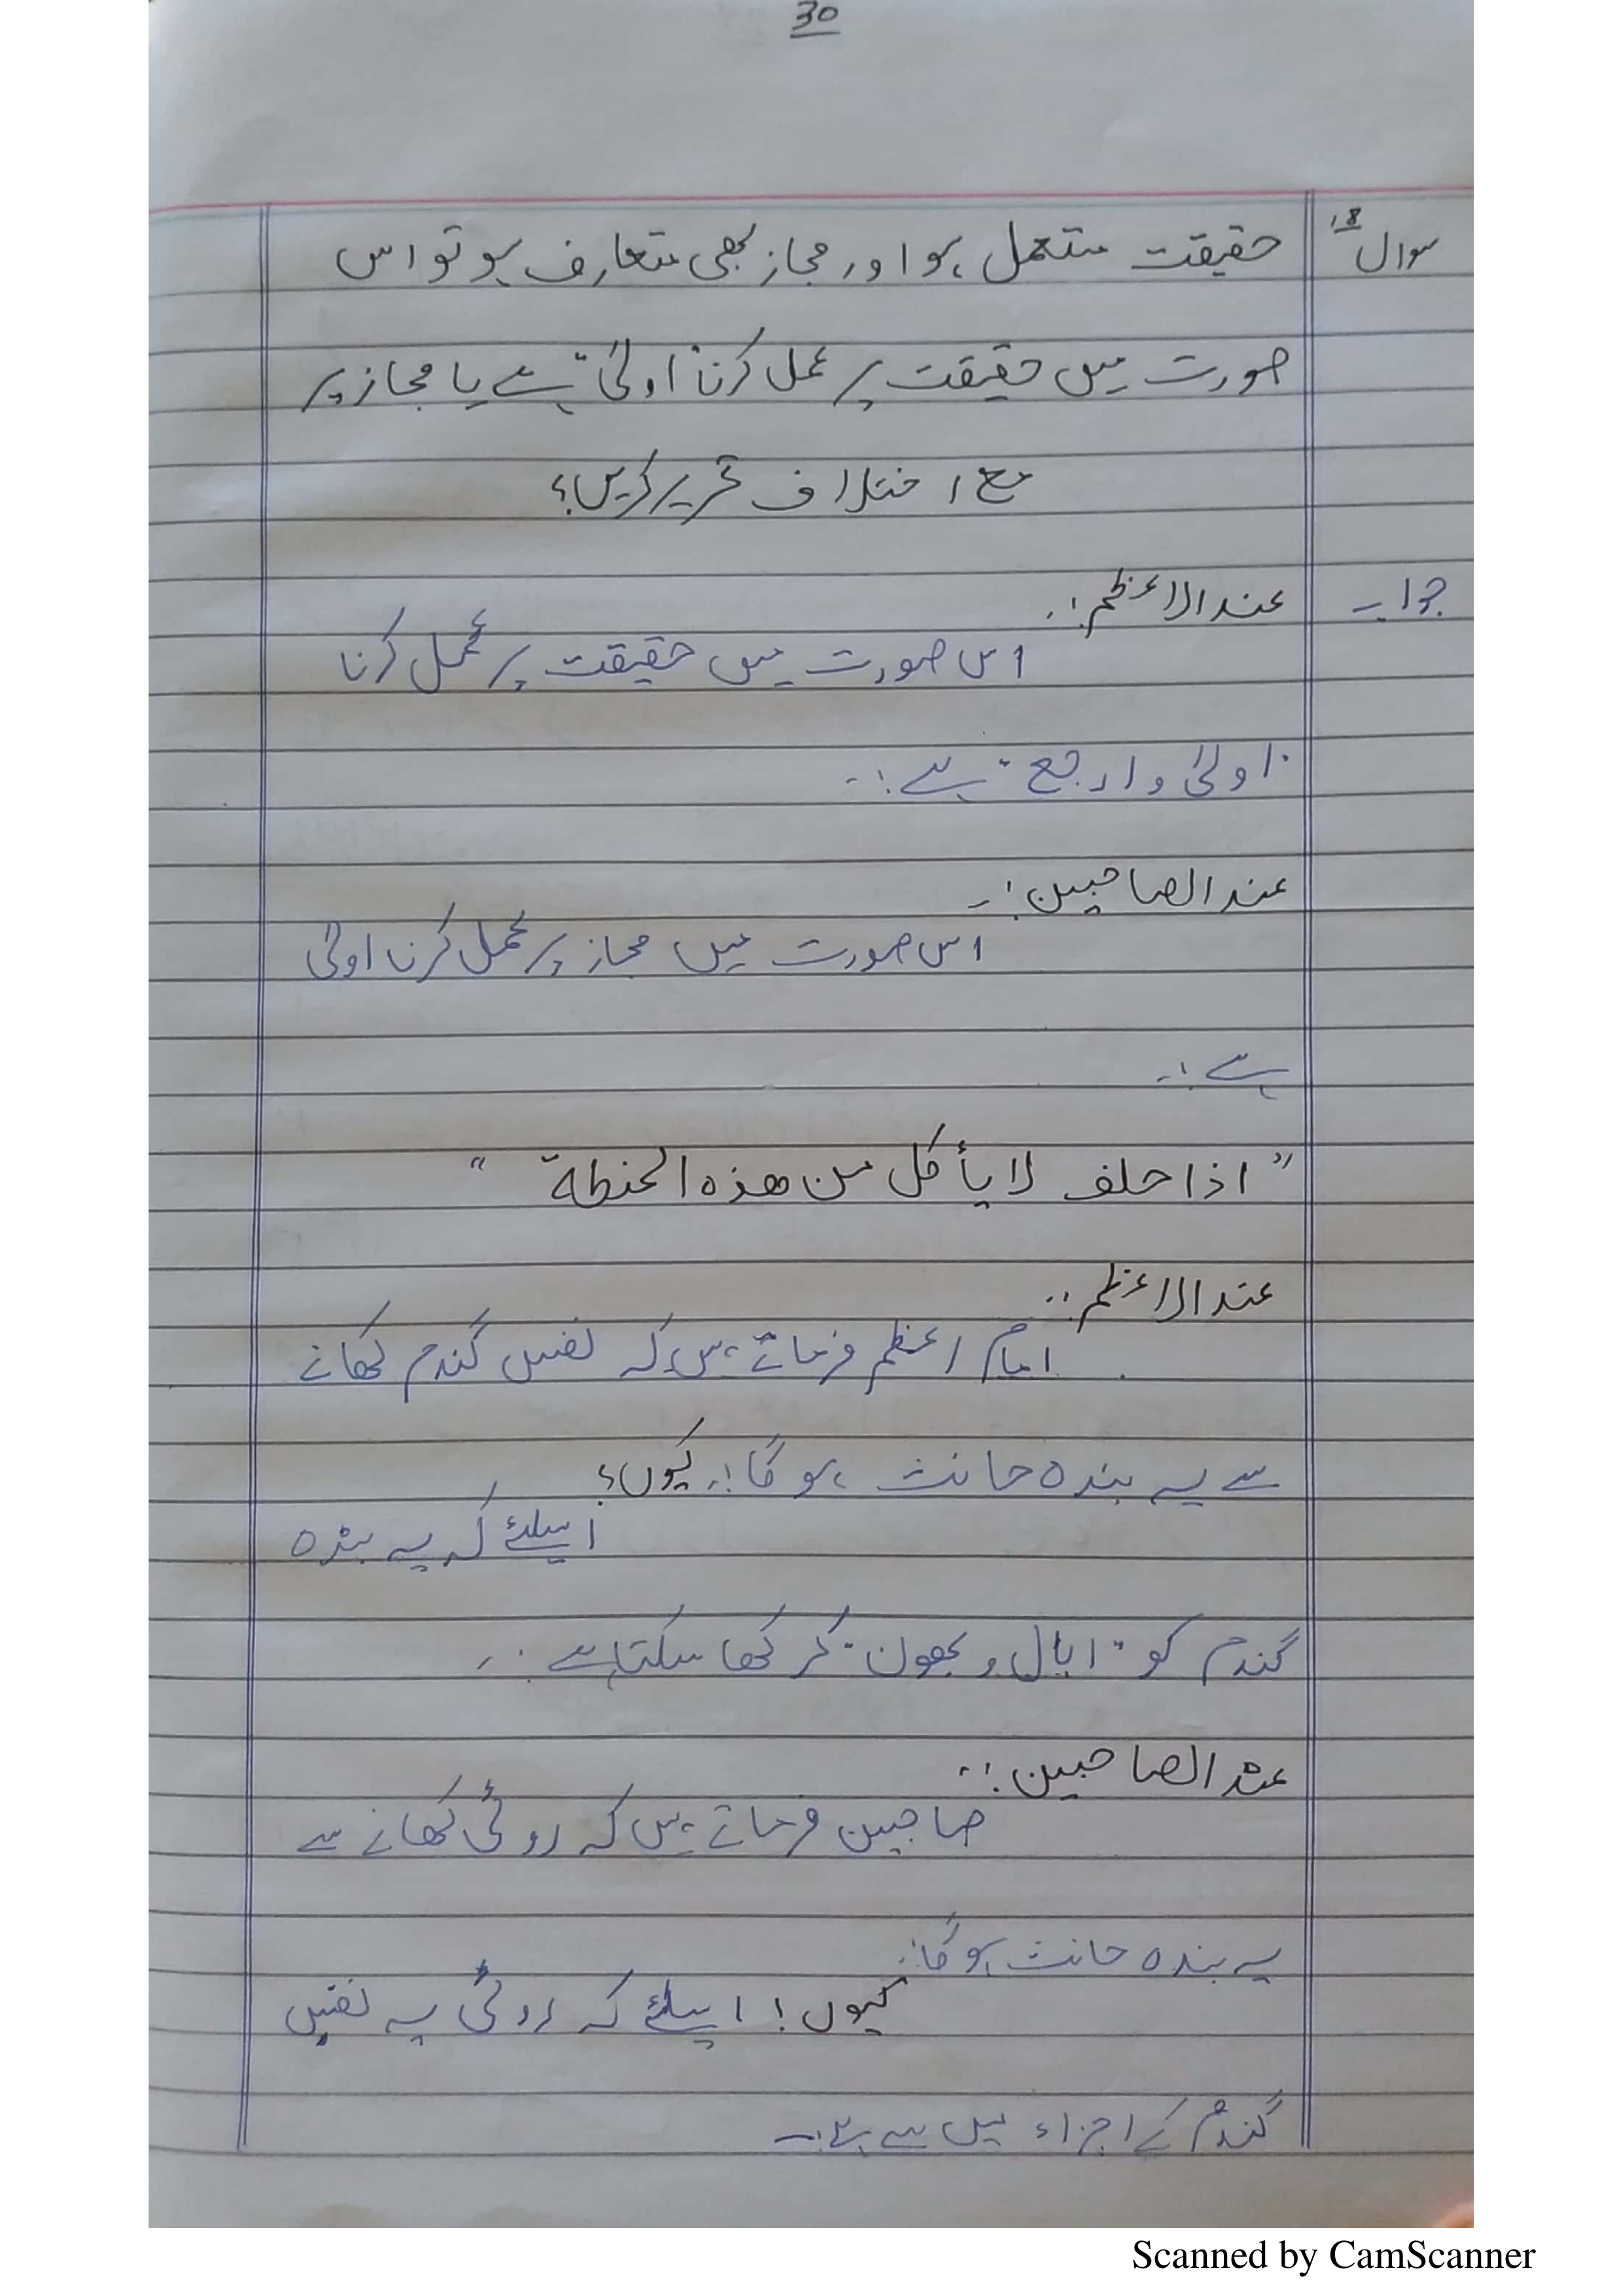 30
سوال 18 حقیقت متعمل ہو اور مجاز بھی متعارف ہو تو اس
صورت میں حقیقت پر عمل کرنا "اولیٰ" ہے یا مجاز پر
مع اختلاف تحریر کریں؟
جواب عند الاعظم:۔
اس صورت میں حقیقت پر عمل کرنا
"اولیٰ و ارجع" ہے:۔
عند الصاحبین:۔
اس صورت میں مجاز پر عمل کرنا اولیٰ
ہے:۔
"اذا حلف لا یأکل من ھذہ الحنطۃ"
عند الاعظم:۔
امام اعظم فرماتے ہیں کہ نفس گندم کھانے
سے یہ بندہ حانث ہو گا:۔ کیوں؟
ایسلئے کہ یہ بندہ
گندم کو "ابال و بھون" کر کھا سکتا ہے:۔
عند الصاحبین:۔
صاحبین فرماتے ہیں کہ روٹی کھانے سے
یہ بندہ حانث ہو گا:۔
کیوں! ایسلئے کہ روٹی یہ نفس
گندم کے اجزاء میں سے ہے:۔
Scanned by CamScanner